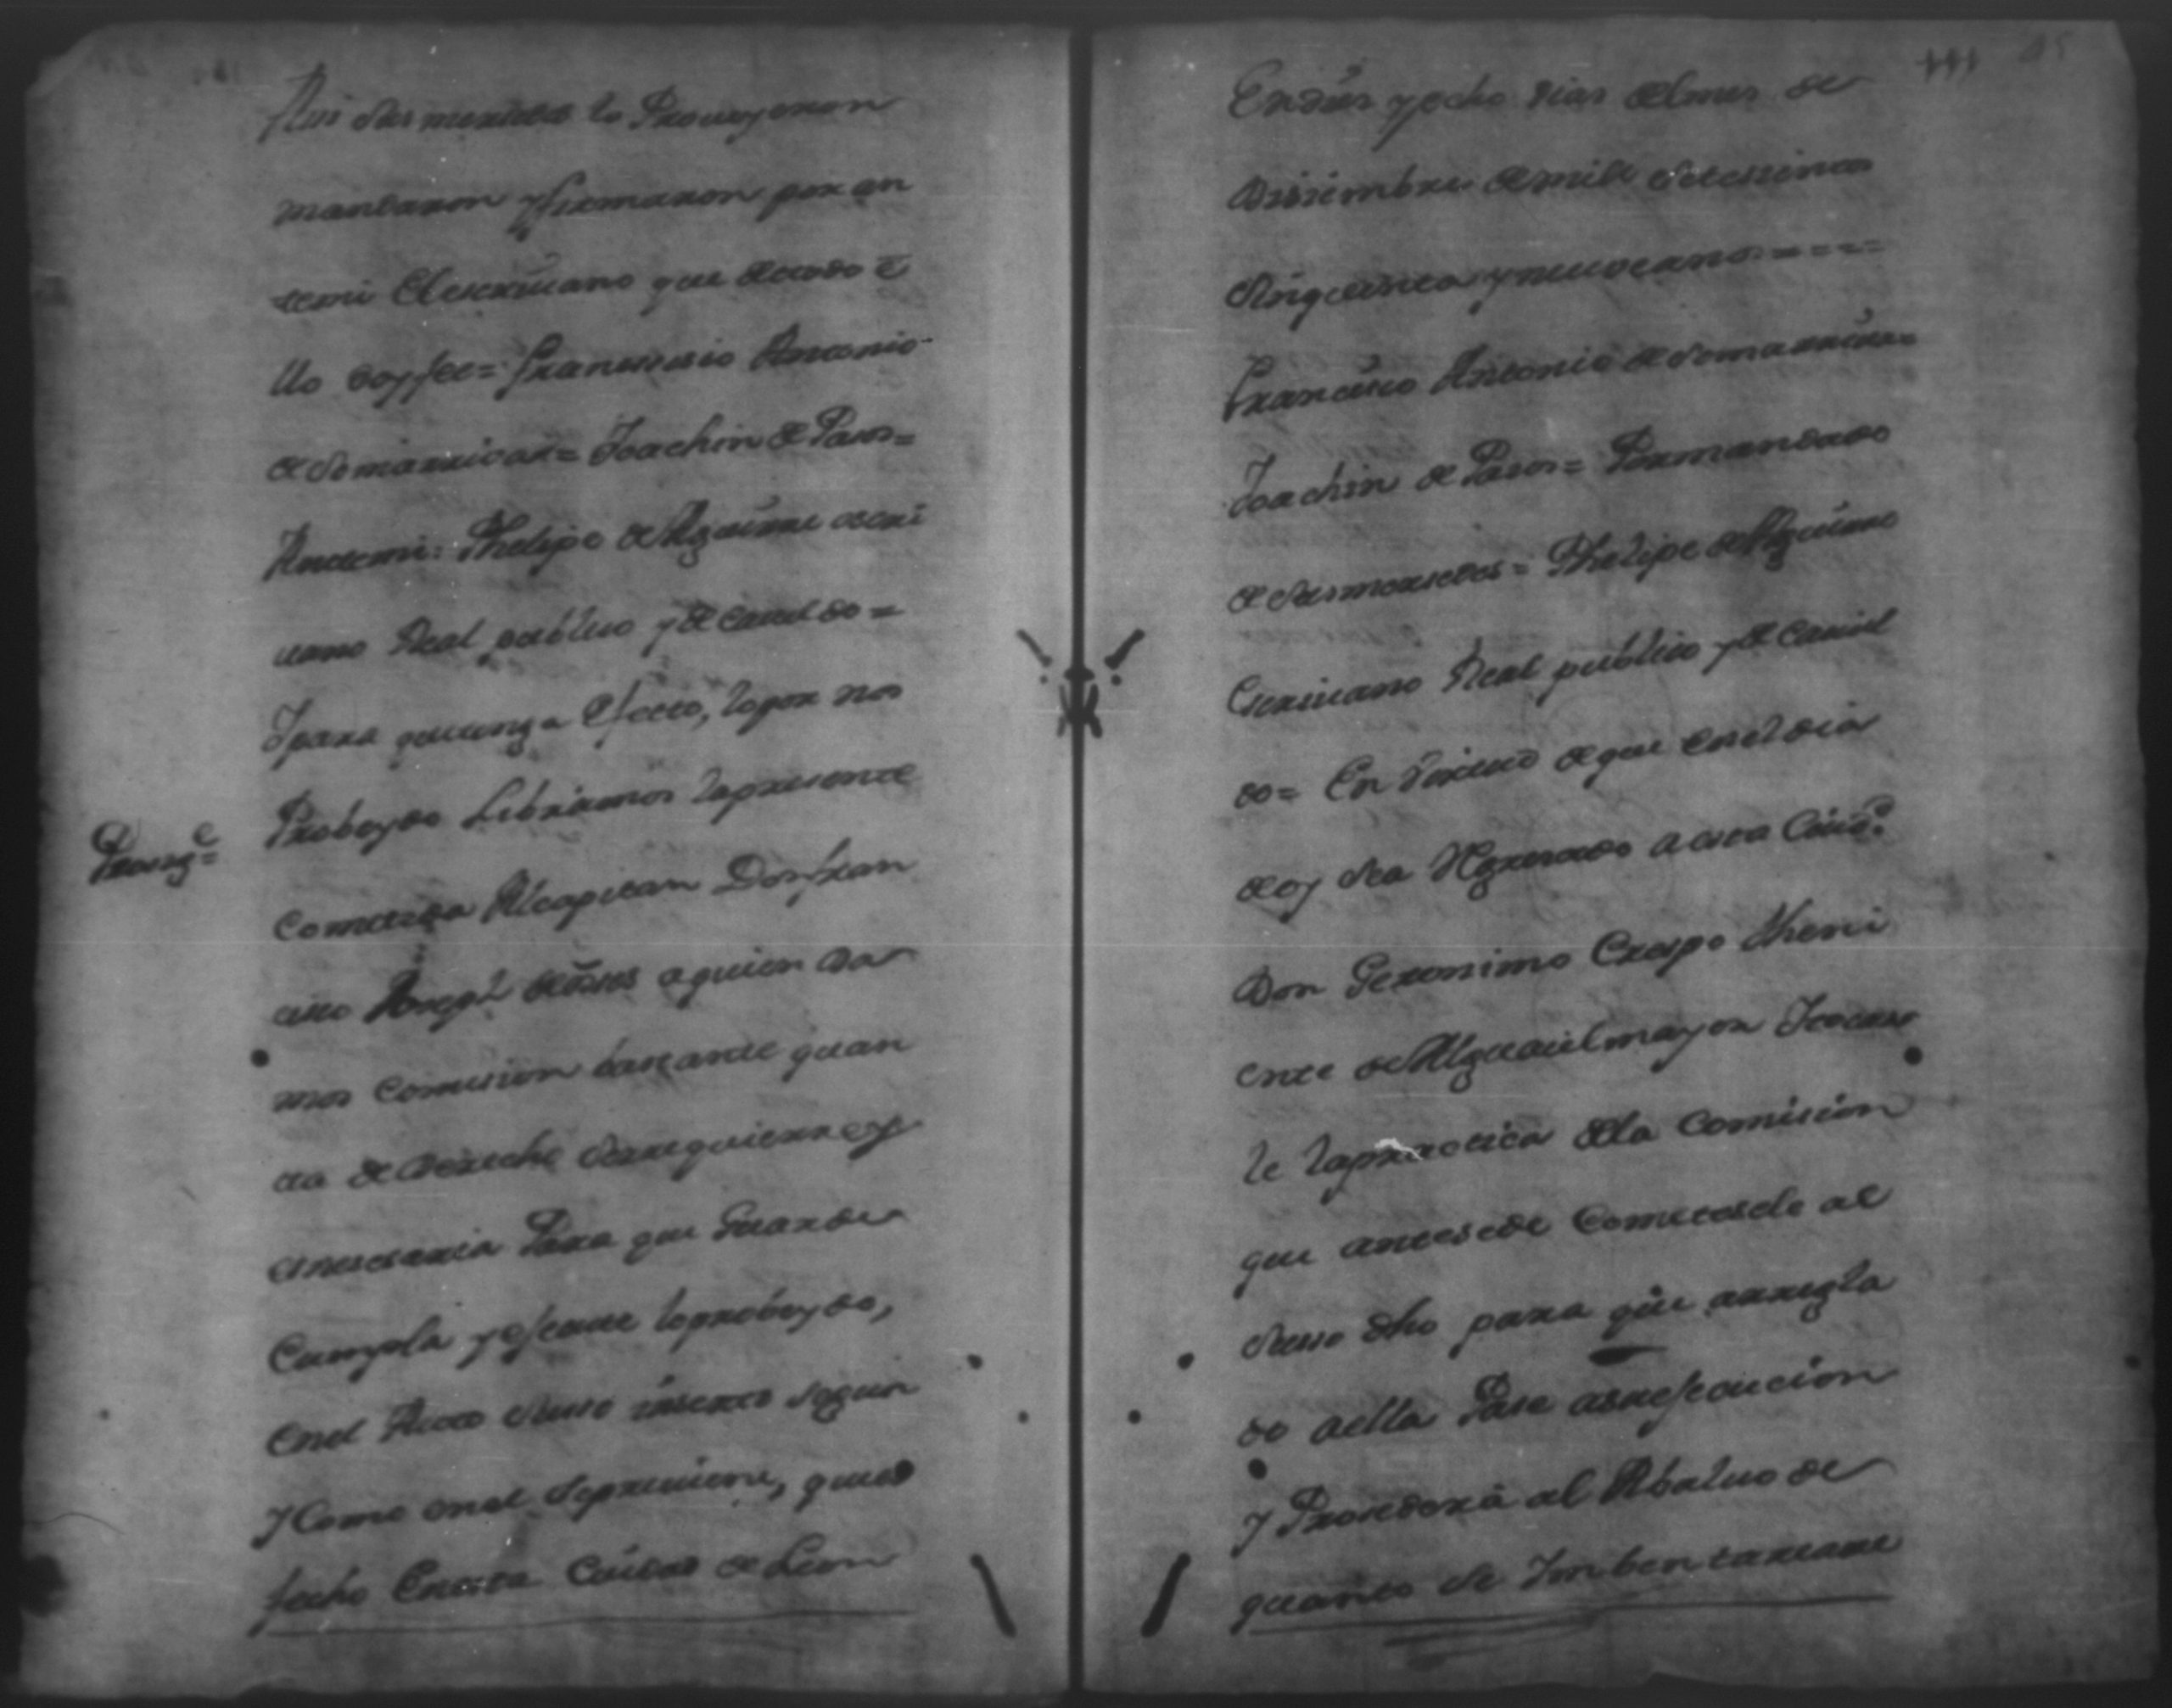 Assi sus mersedes lo Proueyeron
mandaron y firmaron por an
temi el escriuano que de todo e
llo doy fee= Francissco Antonio
de Somarriuas= Joachin de Pasos=
Antemi: Phelipe de Aguirre escri
uano Real publico y de cauildo=
Ipara que tenga efecto, lo por nos
Proboydo Libramos la presente
Prosig.e
Cometida Al capitan Don fran
cisco Joseph a quien da
mos Comision bastante quan
ta de derecho se requiere y
es nesesaria Para que Guarde
Cumpla y efectue lo proboydo,
en el Auto suso inserto segun
y Como en el se preuiene, que es
fecho En esta Ciudad de Leon
En dies y ocho dias del mes de
Disiembre de mil setessientos
sinquenta y nueve anos = = = =
Francisco Antonio de Somarriuas=
Joachin de Pasos= Por mandado
de sus mersedes= Phelipe de Aguirre
Escriuano Real publico y de cauil
do= En Virtud de que en el dia
de oy sea Regresado a esta Ciud.d
Don Geronimo Crespo theni
ente de Alguacil mayor Itocarse
le la practica de la Comision
que antesede Cometasele al
suso dho para que arregla
do a ella Pase a su efecucion
y Prosedera al Abaluo de
quanto se Imbentareare
111 45